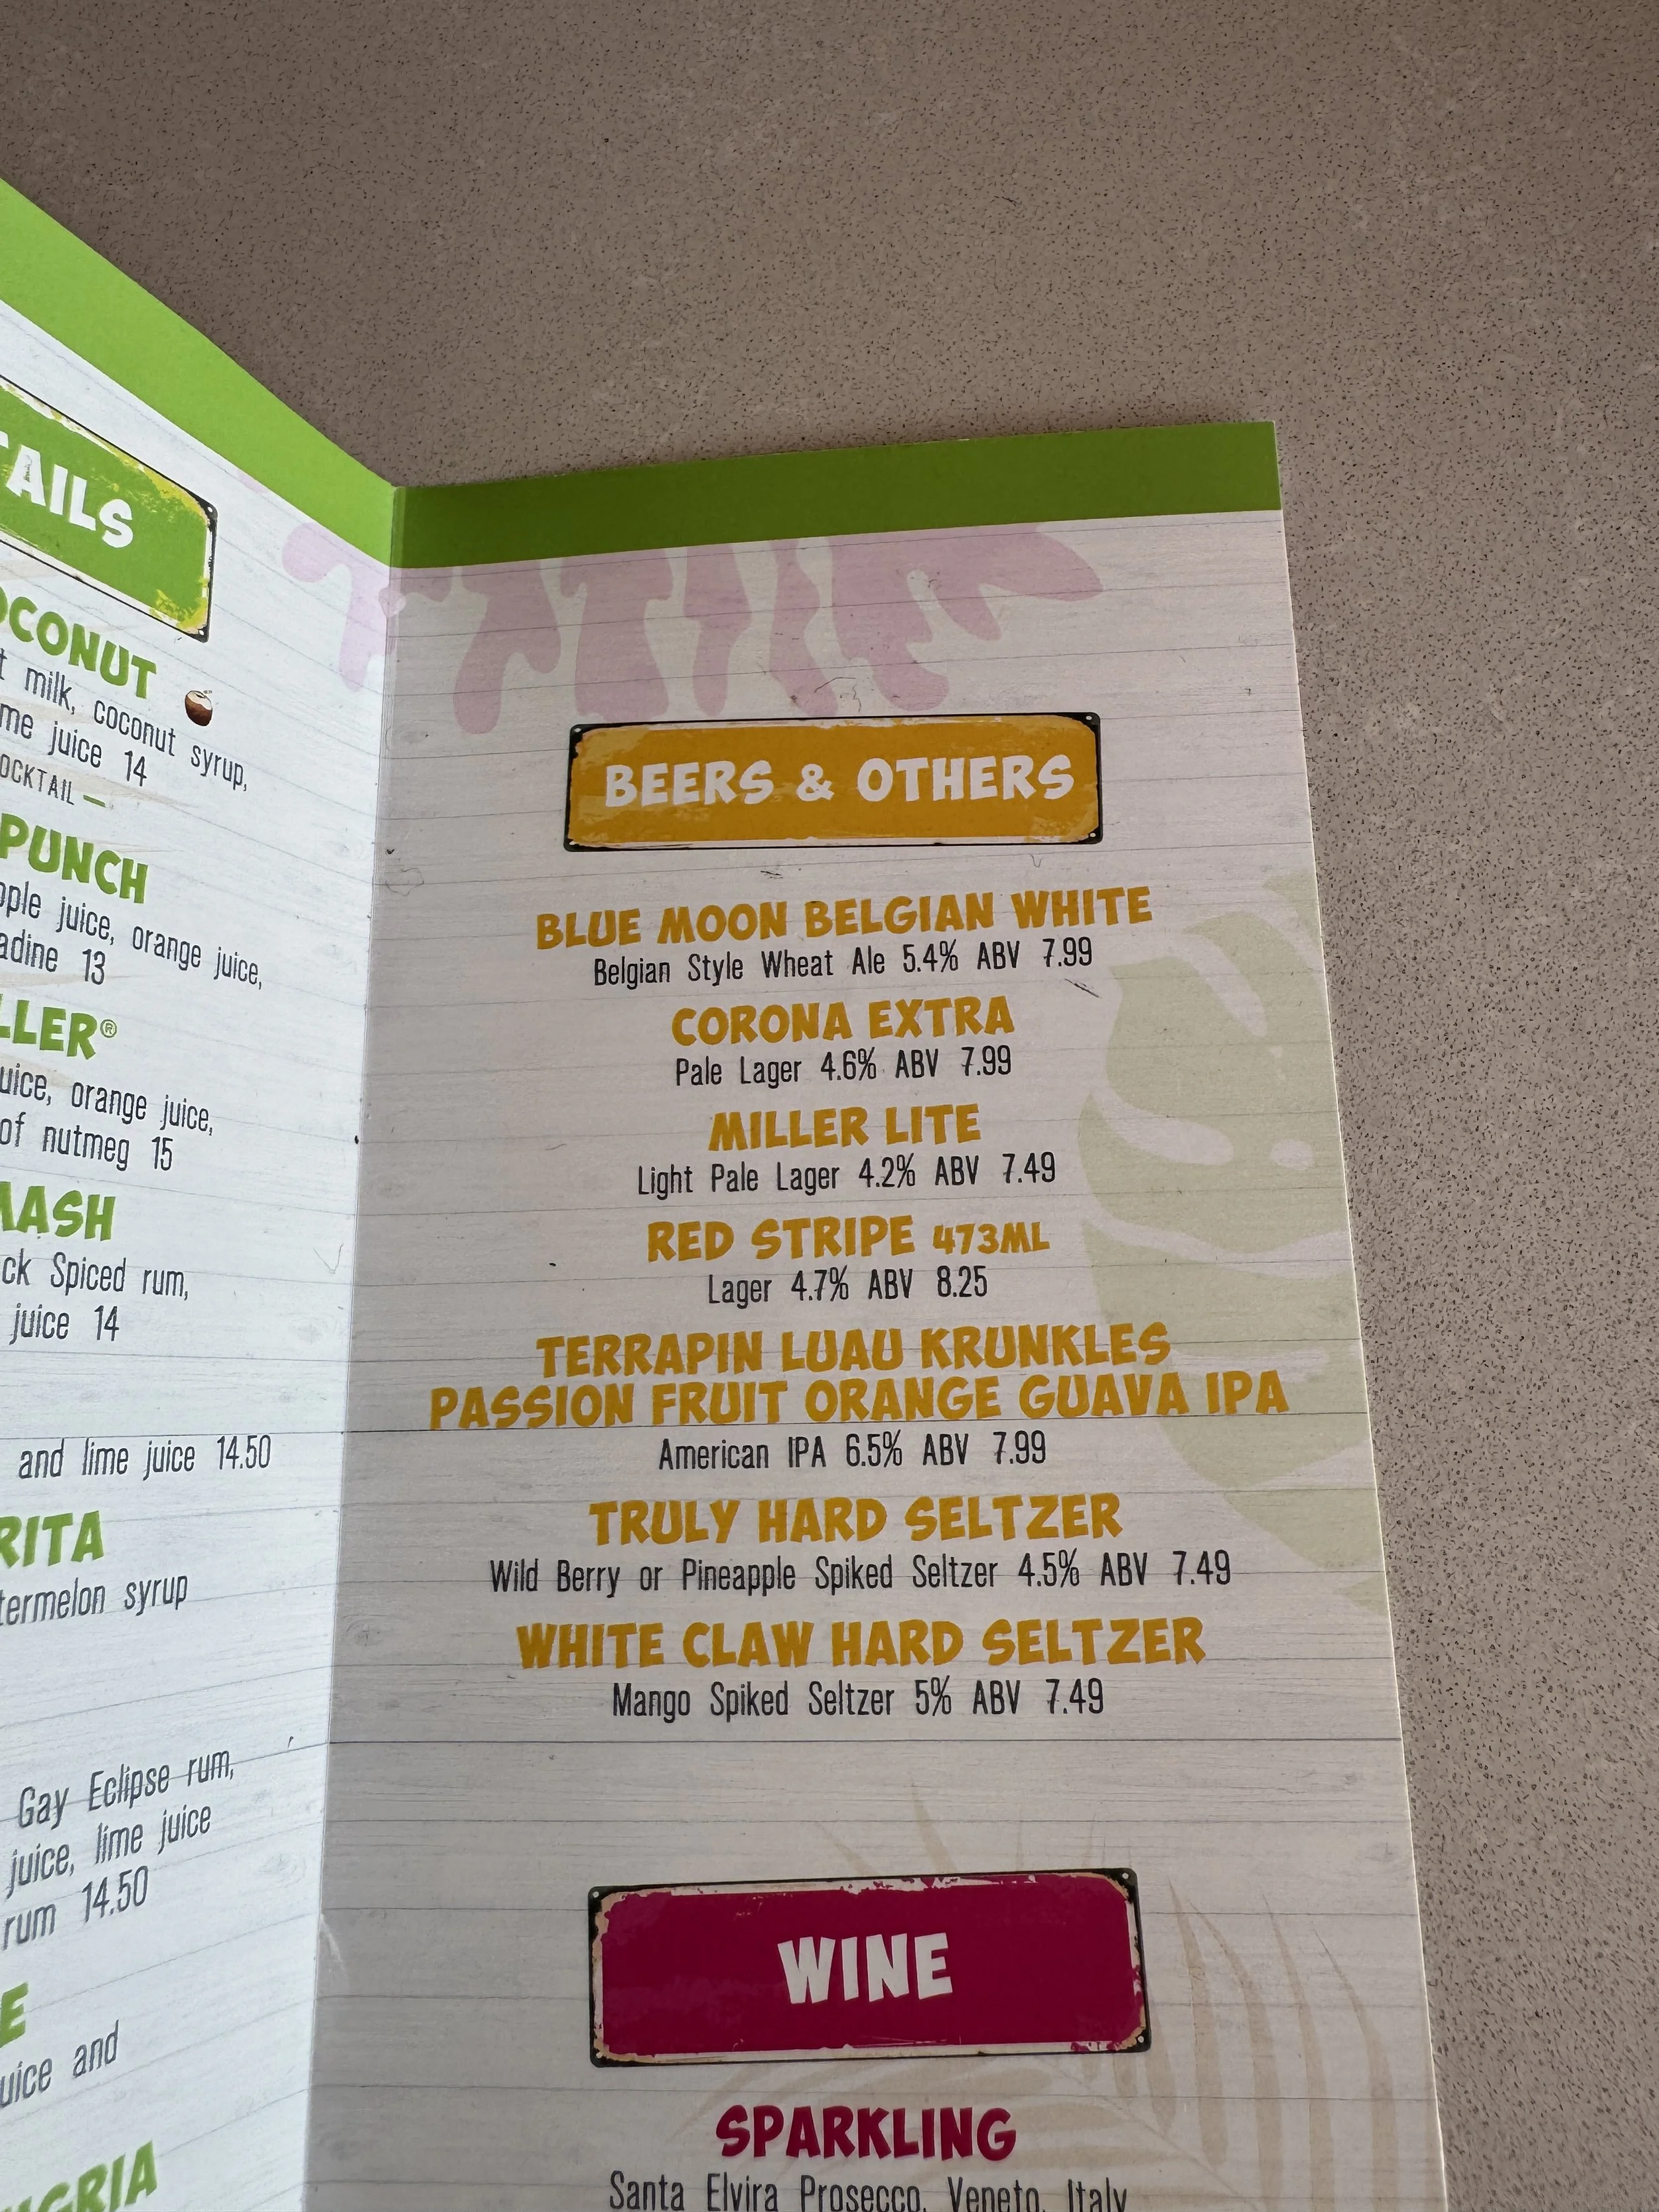 TAILS
OCONUT
milk, coconut syrup,
juice 14
PUNCH
juice, orange juice,
13
orange juice,
of nutmeg 15
Spiced rum,
juice 14
and lime juice 14.50
syrup
Gay Eclipse rum,
juice, lime juice
rum 14.50
and
BEERS & OTHERS
BLUE MOON BELGIAN WHITE
Belgian Style Wheat Ale 5.4% ABV 7.99
CORONA EXTRA
Pale Lager 4.6% ABV 7.99
MILLER LITE
Light Pale Lager 4.2% ABV 7.49
RED STRIPE 473ML
Lager 4.7% ABV 8.25
TERRAPIN LUAU KRUNKLES
PASSION FRUIT ORANGE GUAVA IPA
American IPA 6.5% ABV 7.99
TRULY HARD SELTZER
Wild Berry or Pineapple Spiked Seltzer 4.5% ABV 7.49
WHITE CLAW HARD SELTZER
Mango Spiked Seltzer 5% ABV 7.49
WINE
SPARKLING
Santa Elvira Prosecco, Veneto, Italy